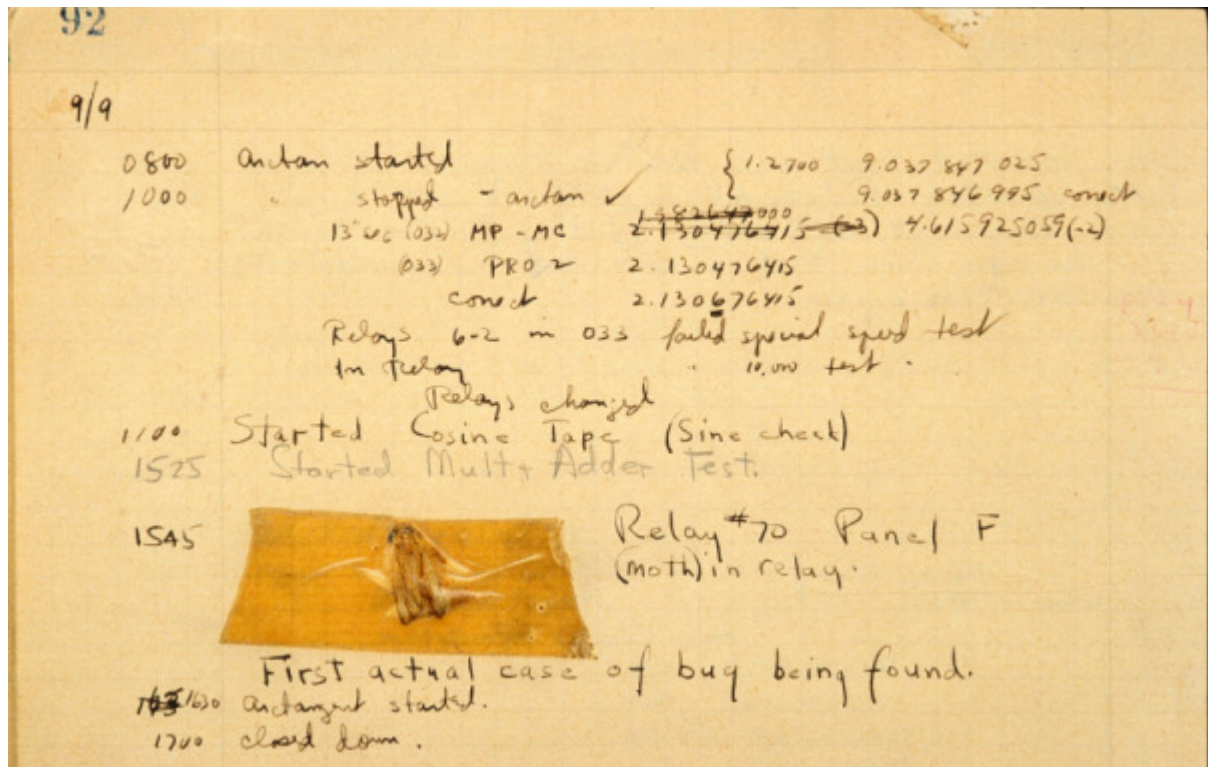 92
9/9
0800 arctan started { 1.2700 9.037 847 025
1000 " stopped - arctan ✓ 9.037 846 995 correct
13" sec (032) MP - MC 2.130476415 (-3) 4.615925059(-2)
(033) PRO 2 2.130476415
correct 2.130676415
Relays 6-2 in 033 failed special speed test
In Relay " 10,000 test .
Relays changed
1100 Started Cosine Tape (Sine check)
1525 Started Mult + Adder Test.
1545 Relay #70 Panel F
(moth) in relay.
First actual case of bug being found.
1630 arctangent started.
1700 closed down.